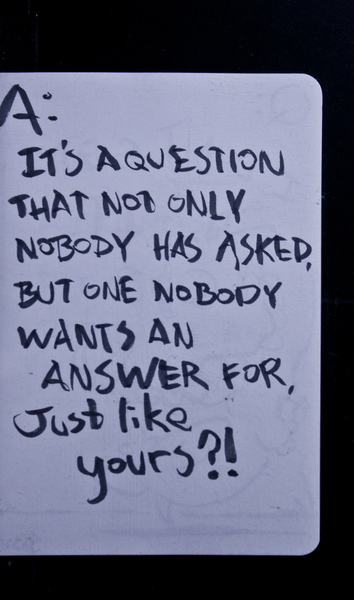 A:
IT'S A QUESTION
THAT NOT ONLY
NOBODY HAS ASKED,
BUT ONE NOBODY
WANTS AN
ANSWER FOR,
Just like
yours?!